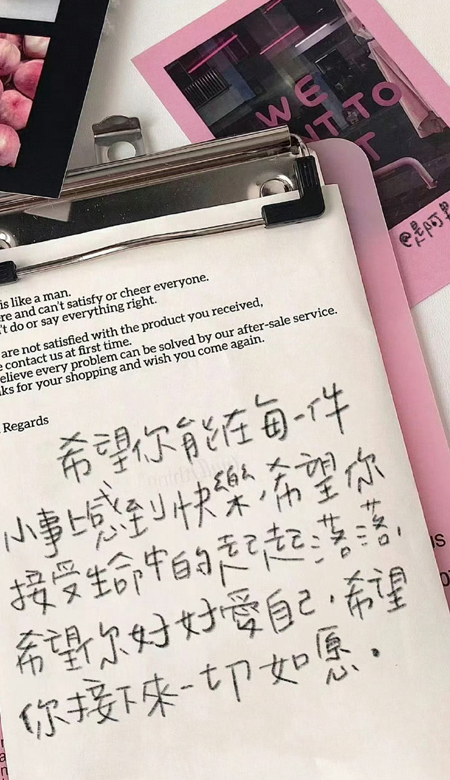 WE
T TO
T
is like a man.
ere and can't satisfy or cheer everyone.
't do or say everything right.
are not satisfied with the product you received,
contact us at first time.
elieve every problem can be solved by our after-sale service.
ks for your shopping and wish you come again.
Regards
希望你能在每一件
小事上感到快樂,希望你
接受生命中的起起落落,
希望你好好愛自己,希望
你接下來一切如愿.